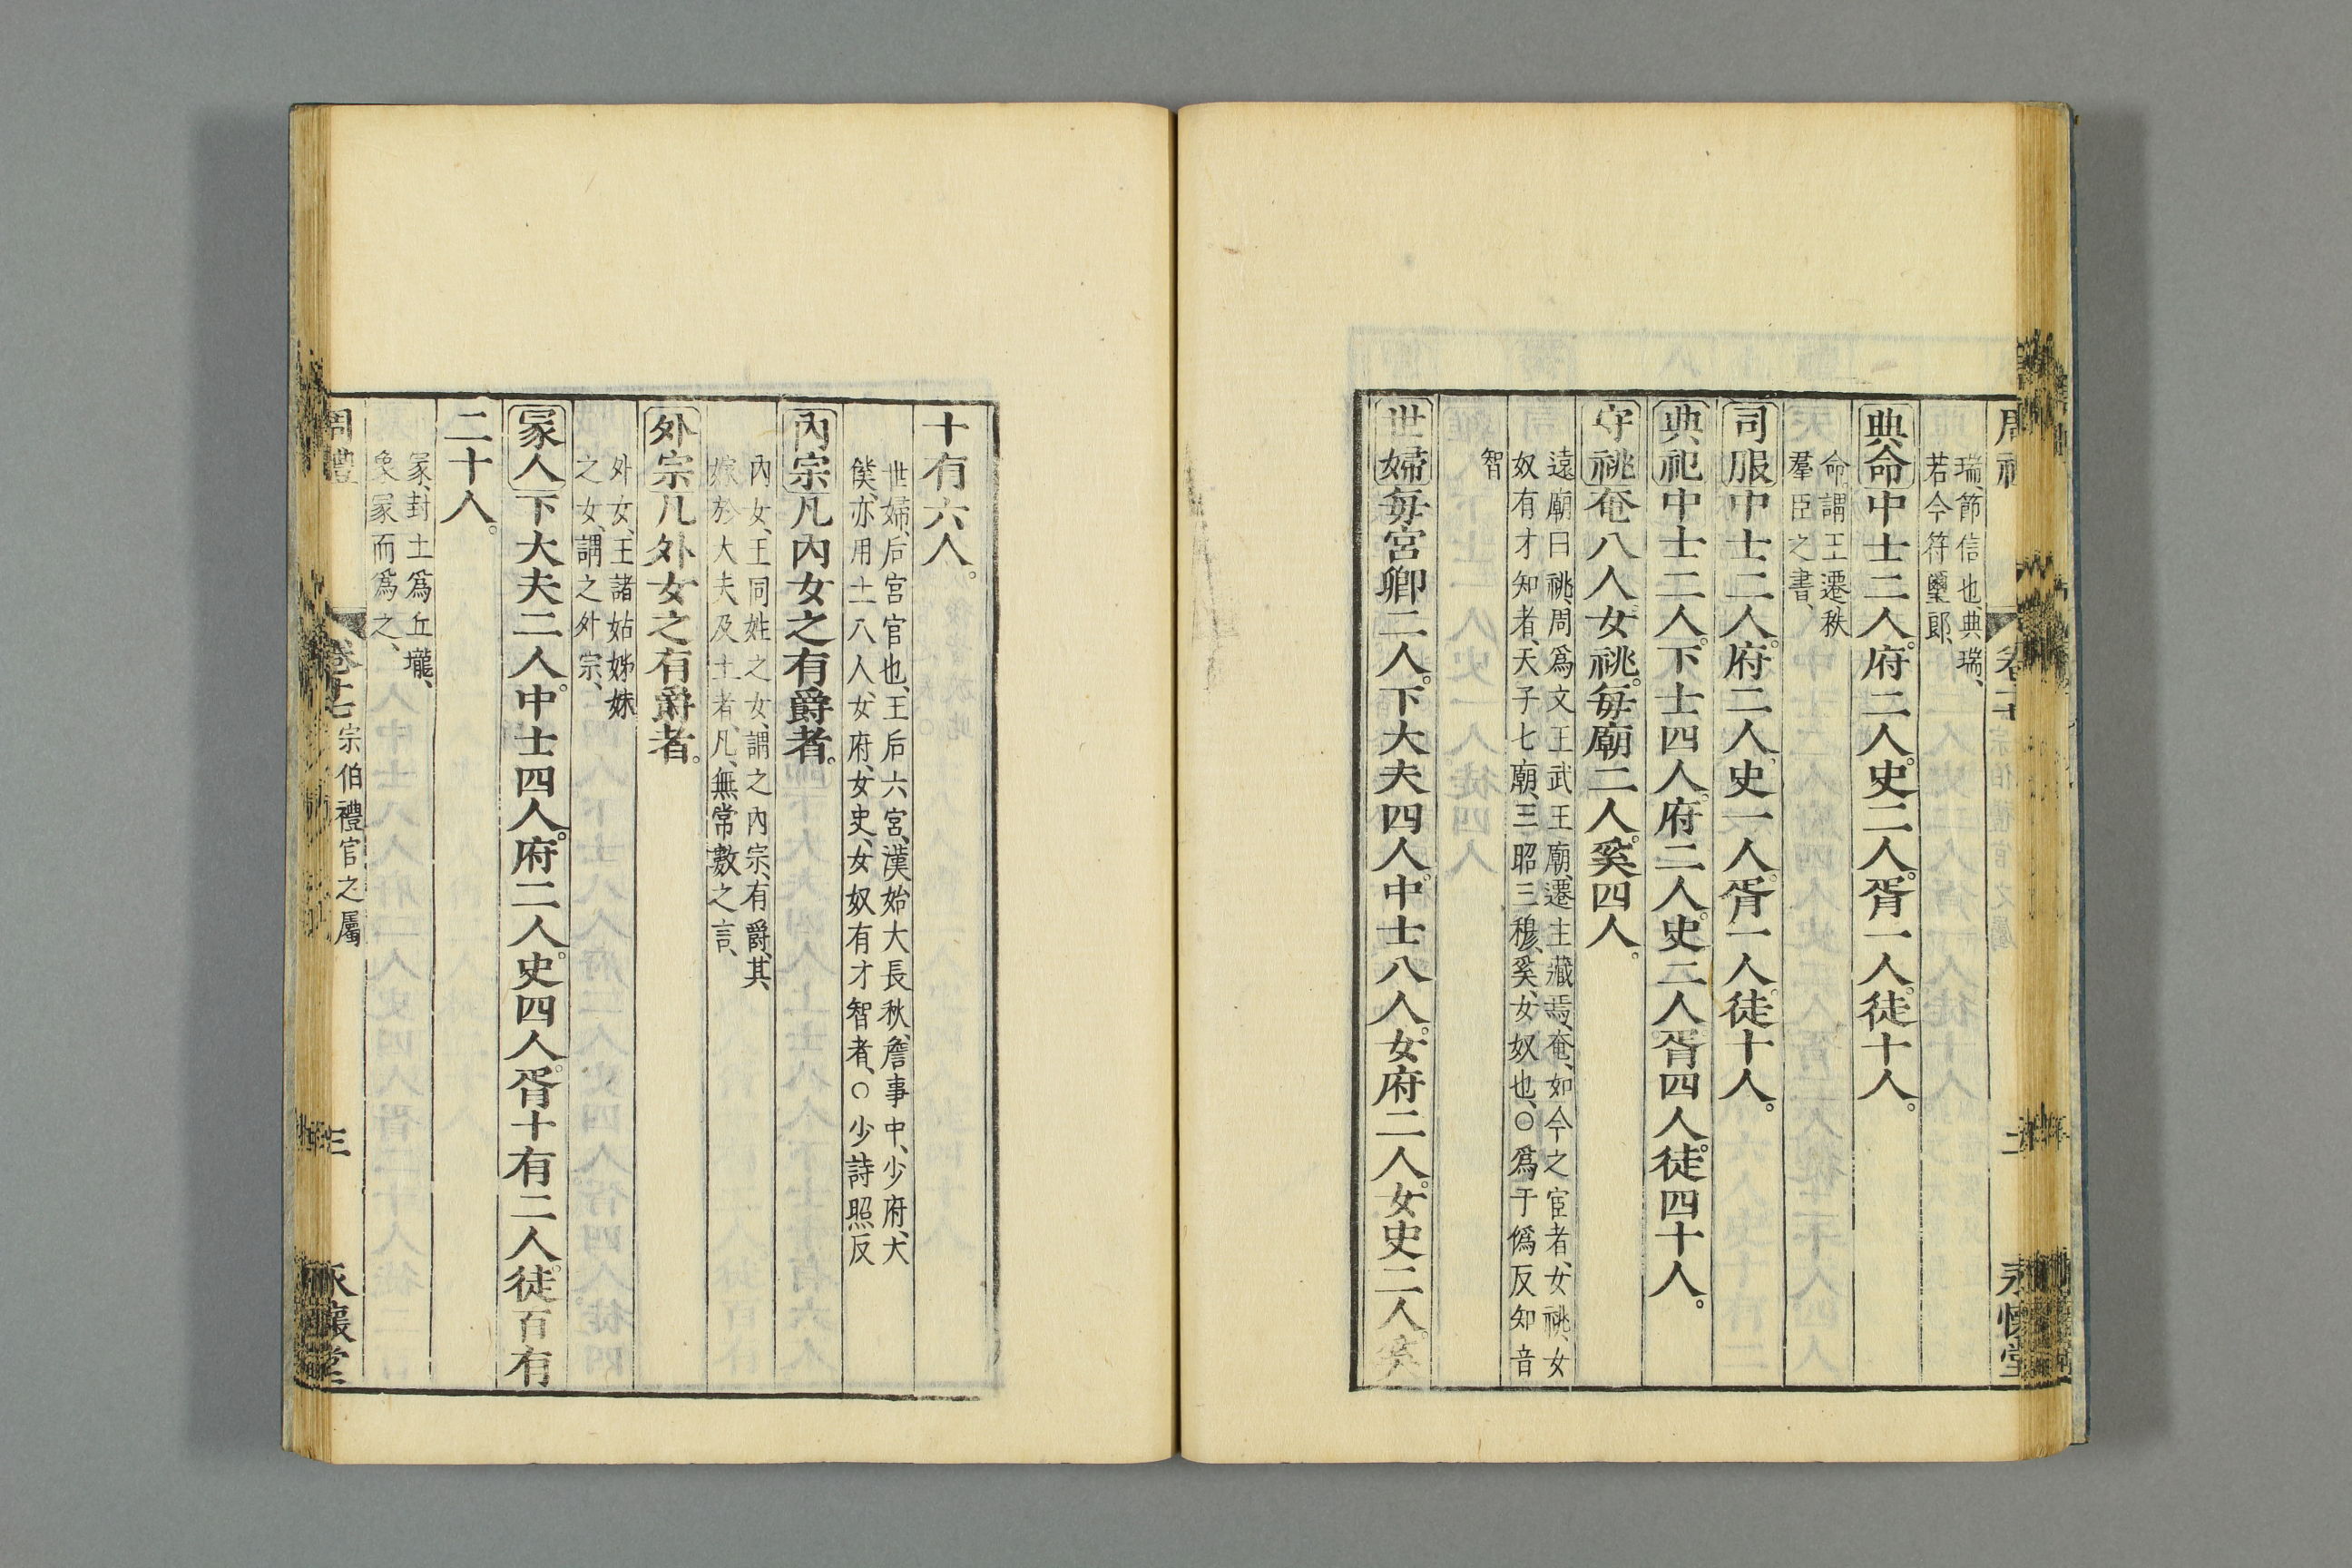 瑞、節信也、典瑞、
若今符璽郎、
典命中士二人。府二人。史二人。胥一人。徒十人。
命謂王遷秩
羣臣之書、
司服中士二人。府二人。史一人。胥一人。徒十人。
典祀中士二人。下士四人。府二人。史二人。胥四人。徒四十人。
守祧奄八人。女祧。每廟二人。奚四人。
遠廟曰祧、周爲文王武王廟、遷主藏焉、奄、如今之宦者、女祧、女
奴有才知者、天子七廟、三昭三穆、奚、女奴也、○爲于僞反知音
智
世婦每宮卿二人。下大夫四人。中士八人。女府二人。女史二人。奚
十有六人。
世婦、后宮官也、王后六宮、漢始大長秋、詹事中、少府、大
僕、亦用士八人、女府、女史、女奴有才智者、○少詩照反
內宗凡內女之有爵者。
內女、王同姓之女、謂之內宗、有爵、其
嫁於大夫及士者、凡、無常數之言、
外宗凡外女之有爵者。
外女、王諸姑姊妹
之女、謂之外宗、
冢人下大夫二人。中士四人。府二人。史四人。胥十有二人。徒百有
二十人。
冢、封土爲丘壠、
象冢而爲之、
周禮 卷十七 宗伯禮官之屬 三 永懷堂